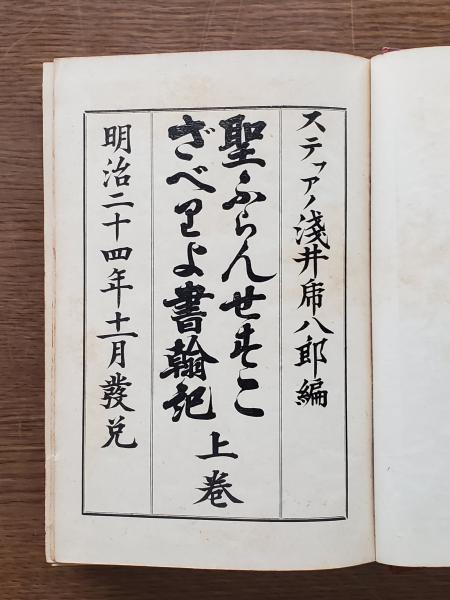 ステファノ淺井乕八郎編
聖ふらんせすこ
ざべりよ書翰記
上卷
明治二十四年十一月發兌